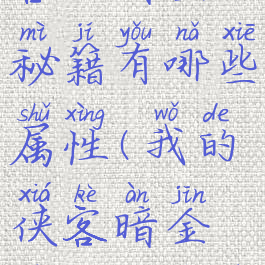 mì jí yǒu nǎ xiē
秘籍有哪些
shǔ xìng wǒ de
属性(我的
xiá kè àn jīn
侠客暗金